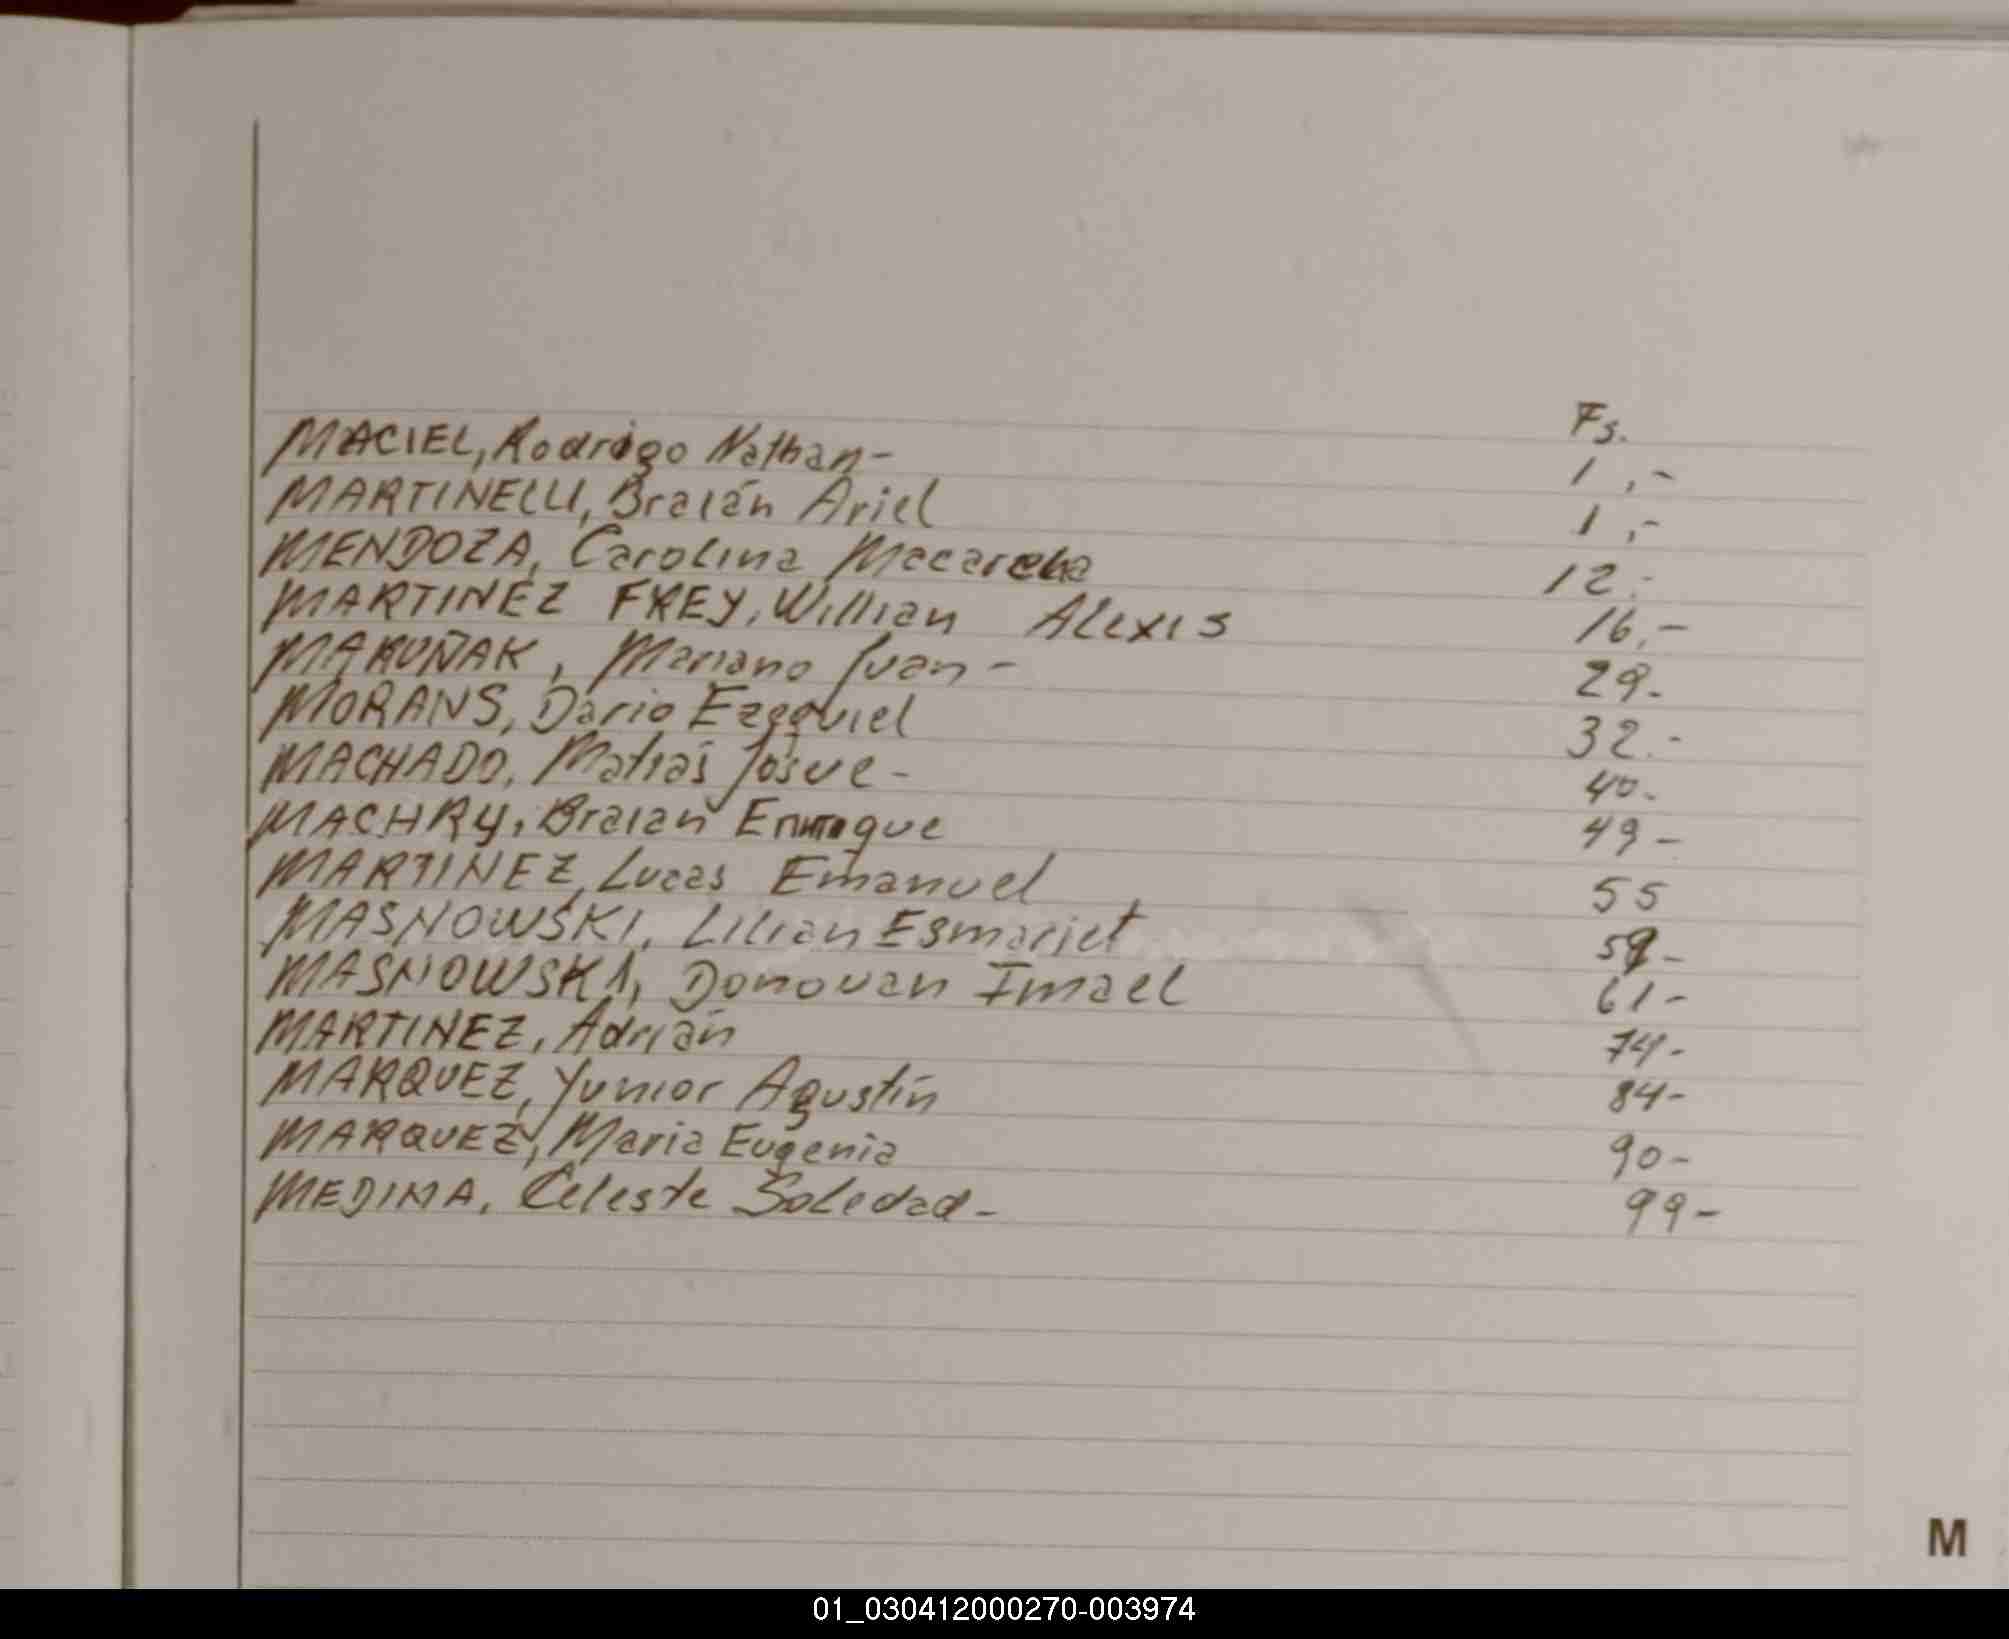 Fs.
MACIEL, Rodrigo Nathan- 1,-
MARTINELLI, Braián Ariel 1,-
MENDOZA, Carolina Macarena 12.-
MARTINEZ FREY, Willian Alexis 16,-
MARUÑAK, Mariano Juan- 29-
MORANS, Dario Ezequiel 32.-
MACHADO, Matías Josue- 40-
MACHRY, Braian Enrique 49-
MARTINEZ, Lucas Emanuel 55
MASNOWSKI, Lilian Esmarjet 59-
MASNOWSKI, Donovan Imael 61-
MARTINEZ, Adrián 74-
MARQUEZ, Yunior Agustín 84-
MARQUEZ, Maria Eugenia 90-
MEDINA, Celeste Soledad- 99-
M
01_030412000270-003974